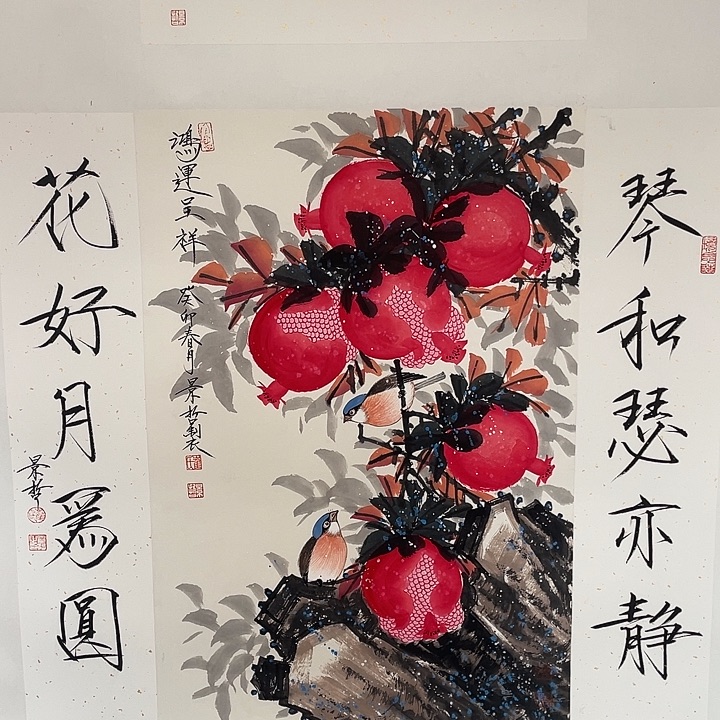 琴和瑟亦静
鴻運呈祥
癸卯春月景
花好月爲圓